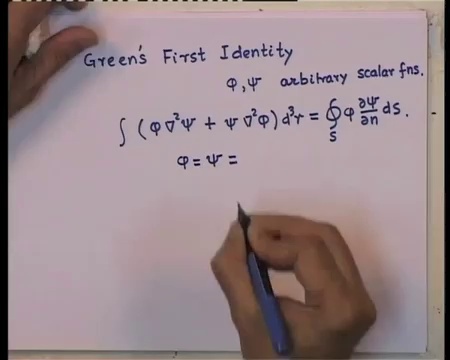 Green's First Identity
φ, ψ arbitrary scalar fns.
∫ (φ ∇²ψ + ψ ∇²φ) d³r = ∮_S φ ∂ψ/∂n dS.
φ = ψ =